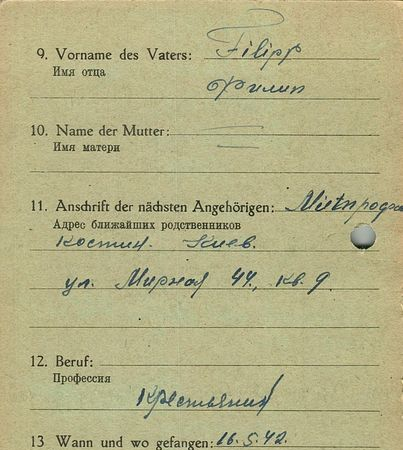 9. Vorname des Vaters: Filipp
Имя отца
Филип
10. Name der Mutter: —
Имя матери
11. Anschrift der nächsten Angehörigen:
Адрес ближайших родственников
Костин. Киев.
ул. Мирная 44, кв. 9
12. Beruf:
Профессия
Крестьянин
13 Wann und wo gefangen: 16.5.42.